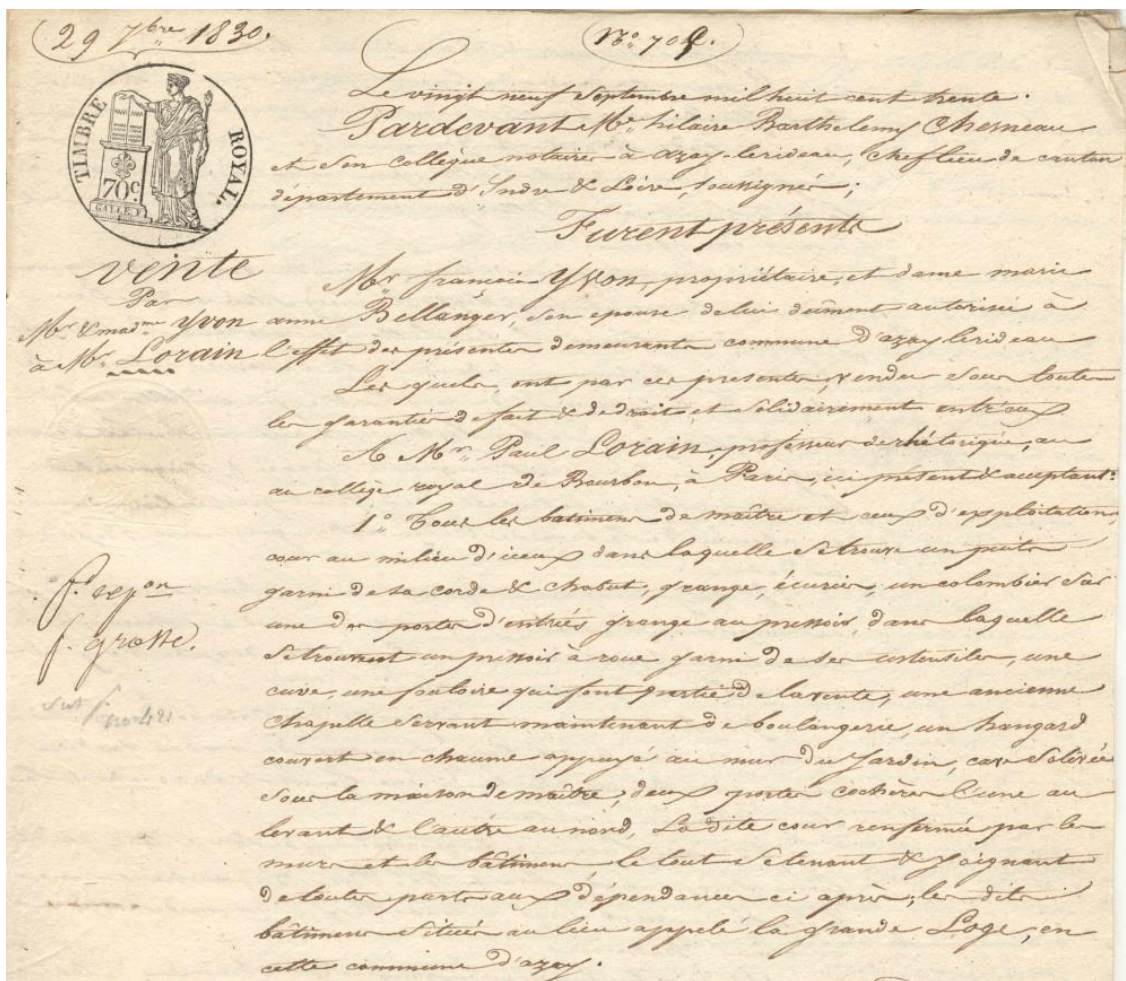 29 7bre 1830.
No. 709.
TIMBRE ROYAL.
70c
Le vingt neuf Septembre mil huit cent trente.
Pardevant Me. hilaire Barthelemy Chesneau
et son collègue notaires à azay-lerideau, chef lieu de canton
département d'Indre & Loire, soussignés;
Furent présents
vente
Par
Mr. & madme Yvon
à Mr. Lorain
Mr. françois Yvon, propriétaire, et dame marie
anne Bellanger, son epouse de lui dûment autorisée à
l'effet des présentes demeurants commune d'azay lerideau
Les quels, ont par ces presentes, vendu sous toutes
les garanties de fait & de droit, et solidairement entr'eux
A Mr. Paul Lorain, professeur de rhétorique, au
au collège royal de Bourbon, à Paris, ici présent & acceptant:
1o. Tous les batimens de maître et ceux d'exploitation,
cour au milieu d'iceux dans laquelle se trouve un puits
garni de sa corde & chabut, grange, écuries, un colombier sur
une des portes d'entrées grange au pressoir, dans laquelle
se trouvent un pressoir à roue garni de ses ustensiles, une
cuve, une fouloire qui font partie de la vente, une ancienne
chapelle servant maintenant de boulangerie, un hangard
couvert en chaume appuyé au mur du Jardin, cave solivée
sous la maison de maître, deux portes cochères l'une au
levant & l'autre au nord, La dite cour renfermée par les
murs et les bâtimens le tout se tenant & joignant
de toutes parts aux dépendances ci après; les dits
bâtimens situés au lieu appelé la grande Loge, en
cette commune d'azay.
f. expon
f. grosse.